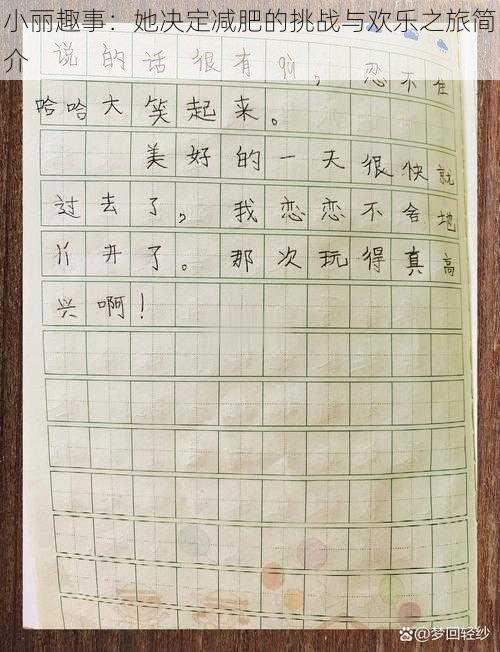 小丽趣事：她决定减肥的挑战与欢乐之旅简
介
说的话很有qù，忍不住
哈哈大笑起来。
美好的一天很快就
过去了，我恋恋不舍地
开了。那次玩得真高
兴啊！
@梦回轻纱